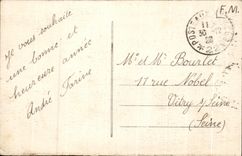 Je vous souhaite
une bonne et
heureuse année
André
F.M.
Mr et Mme Bourlet
17 rue Nobel
Vitry s/Seine
(Seine)